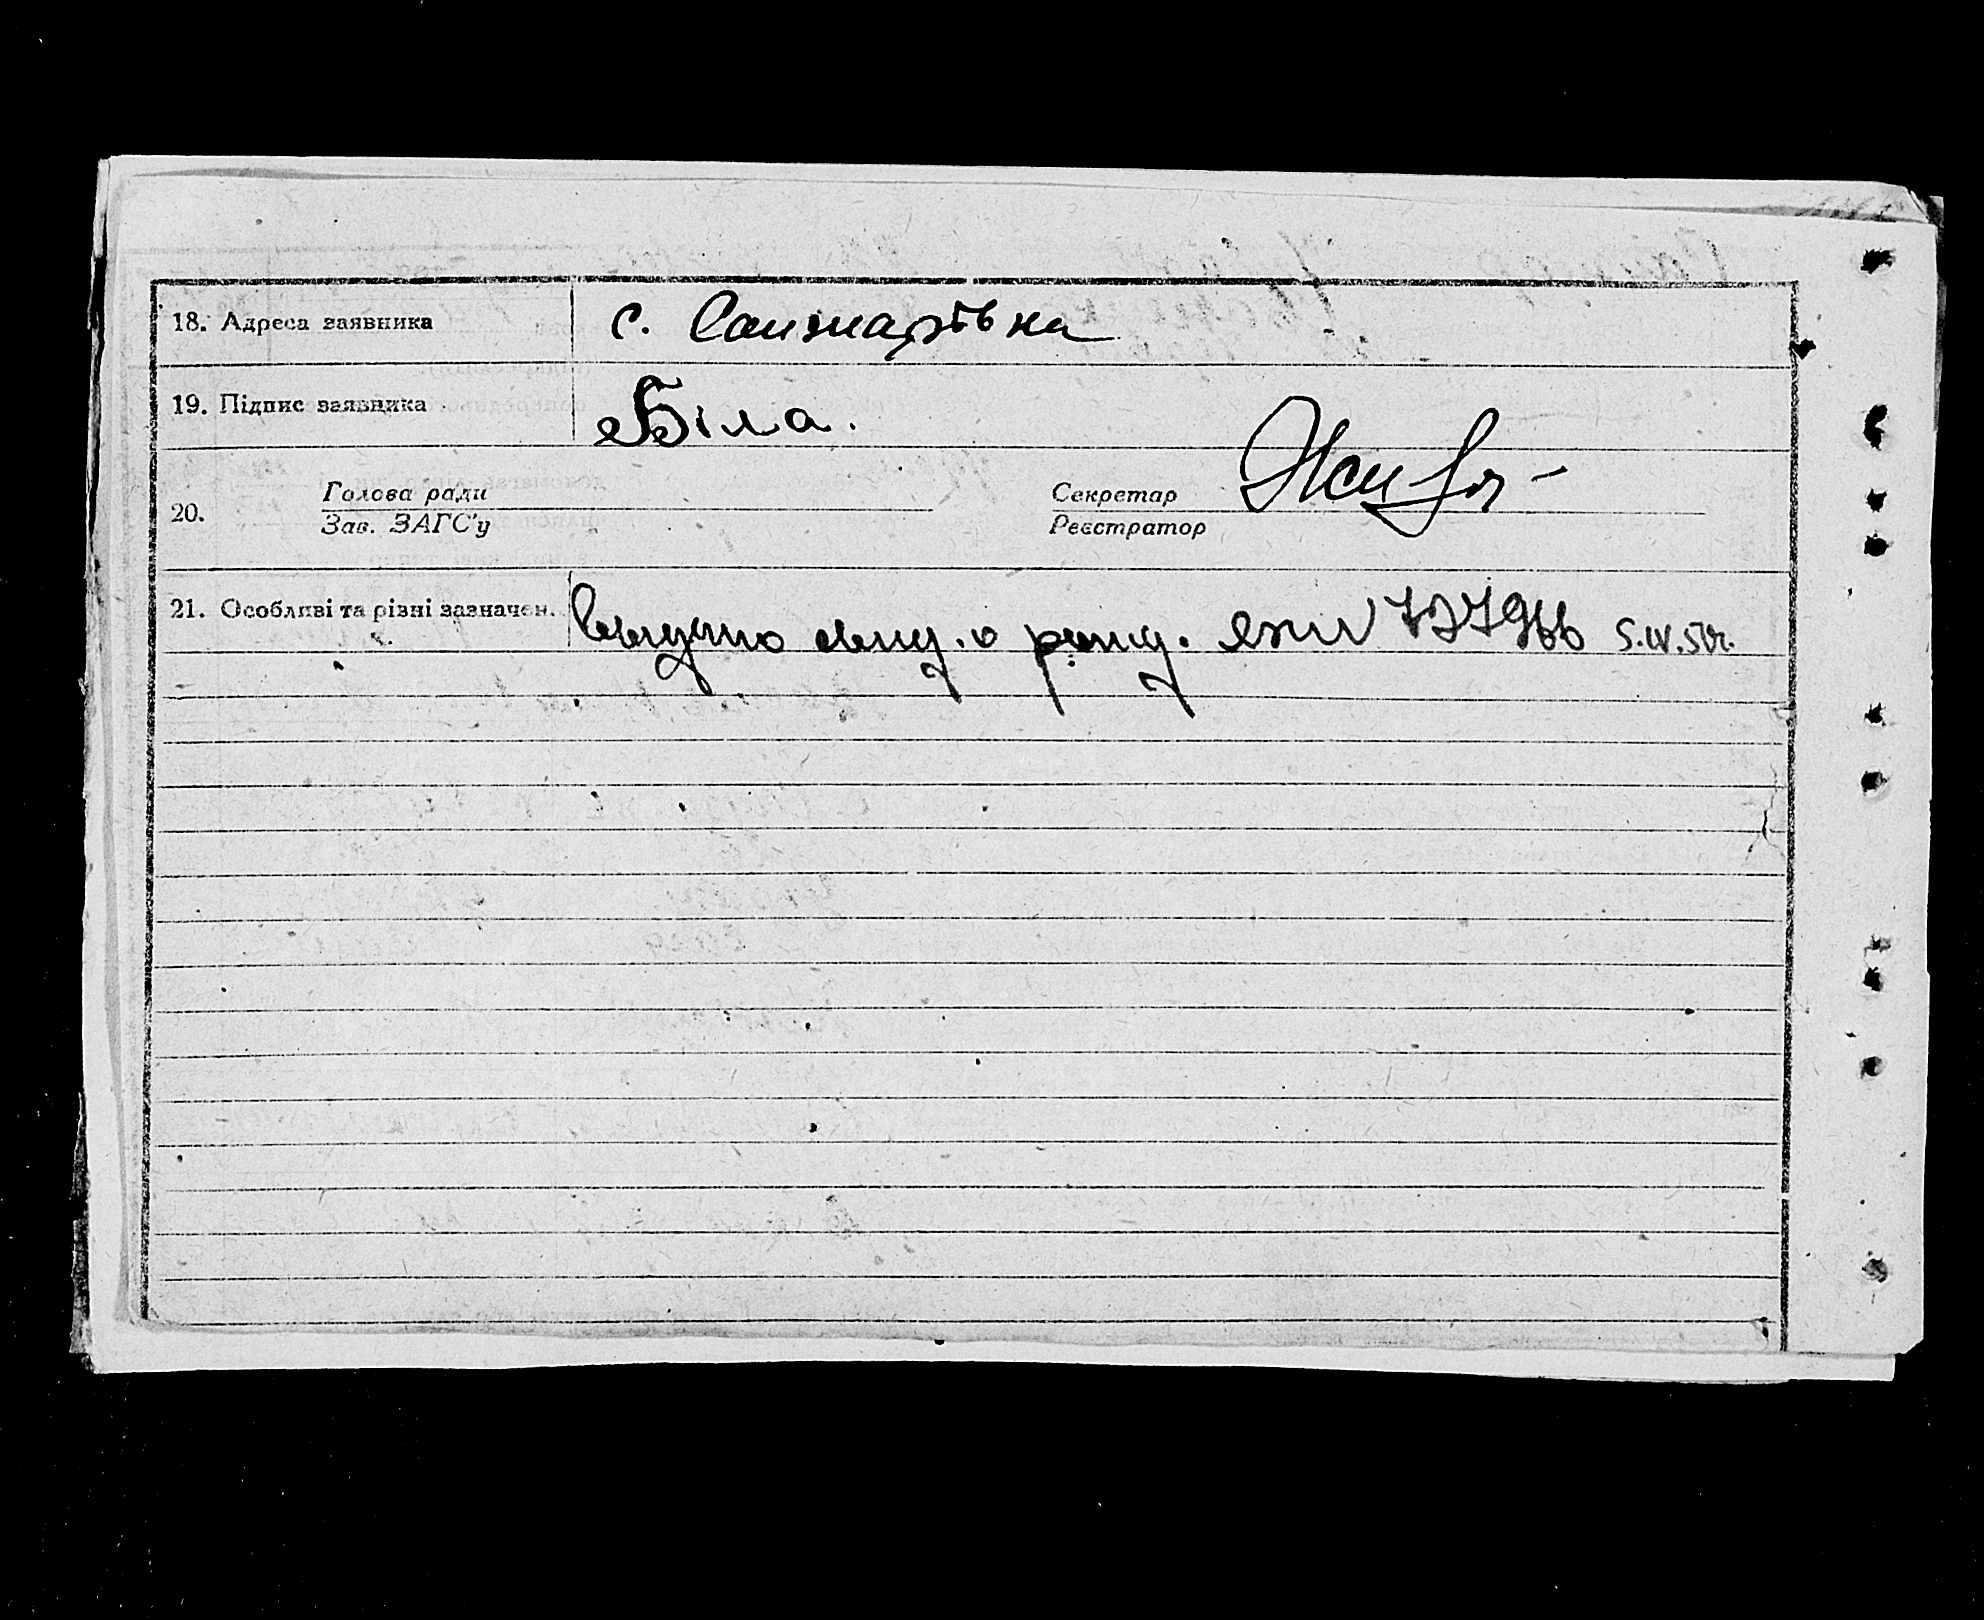 18. Адреса заявника с. Санжарівка
19. Підпис заявника Біла.
20. Голова ради Секретар
Зав. ЗАГС'у Реєстратор
21. Особливі та різні зазначен. Выдано свид. о рожд. 5.IV.50г.